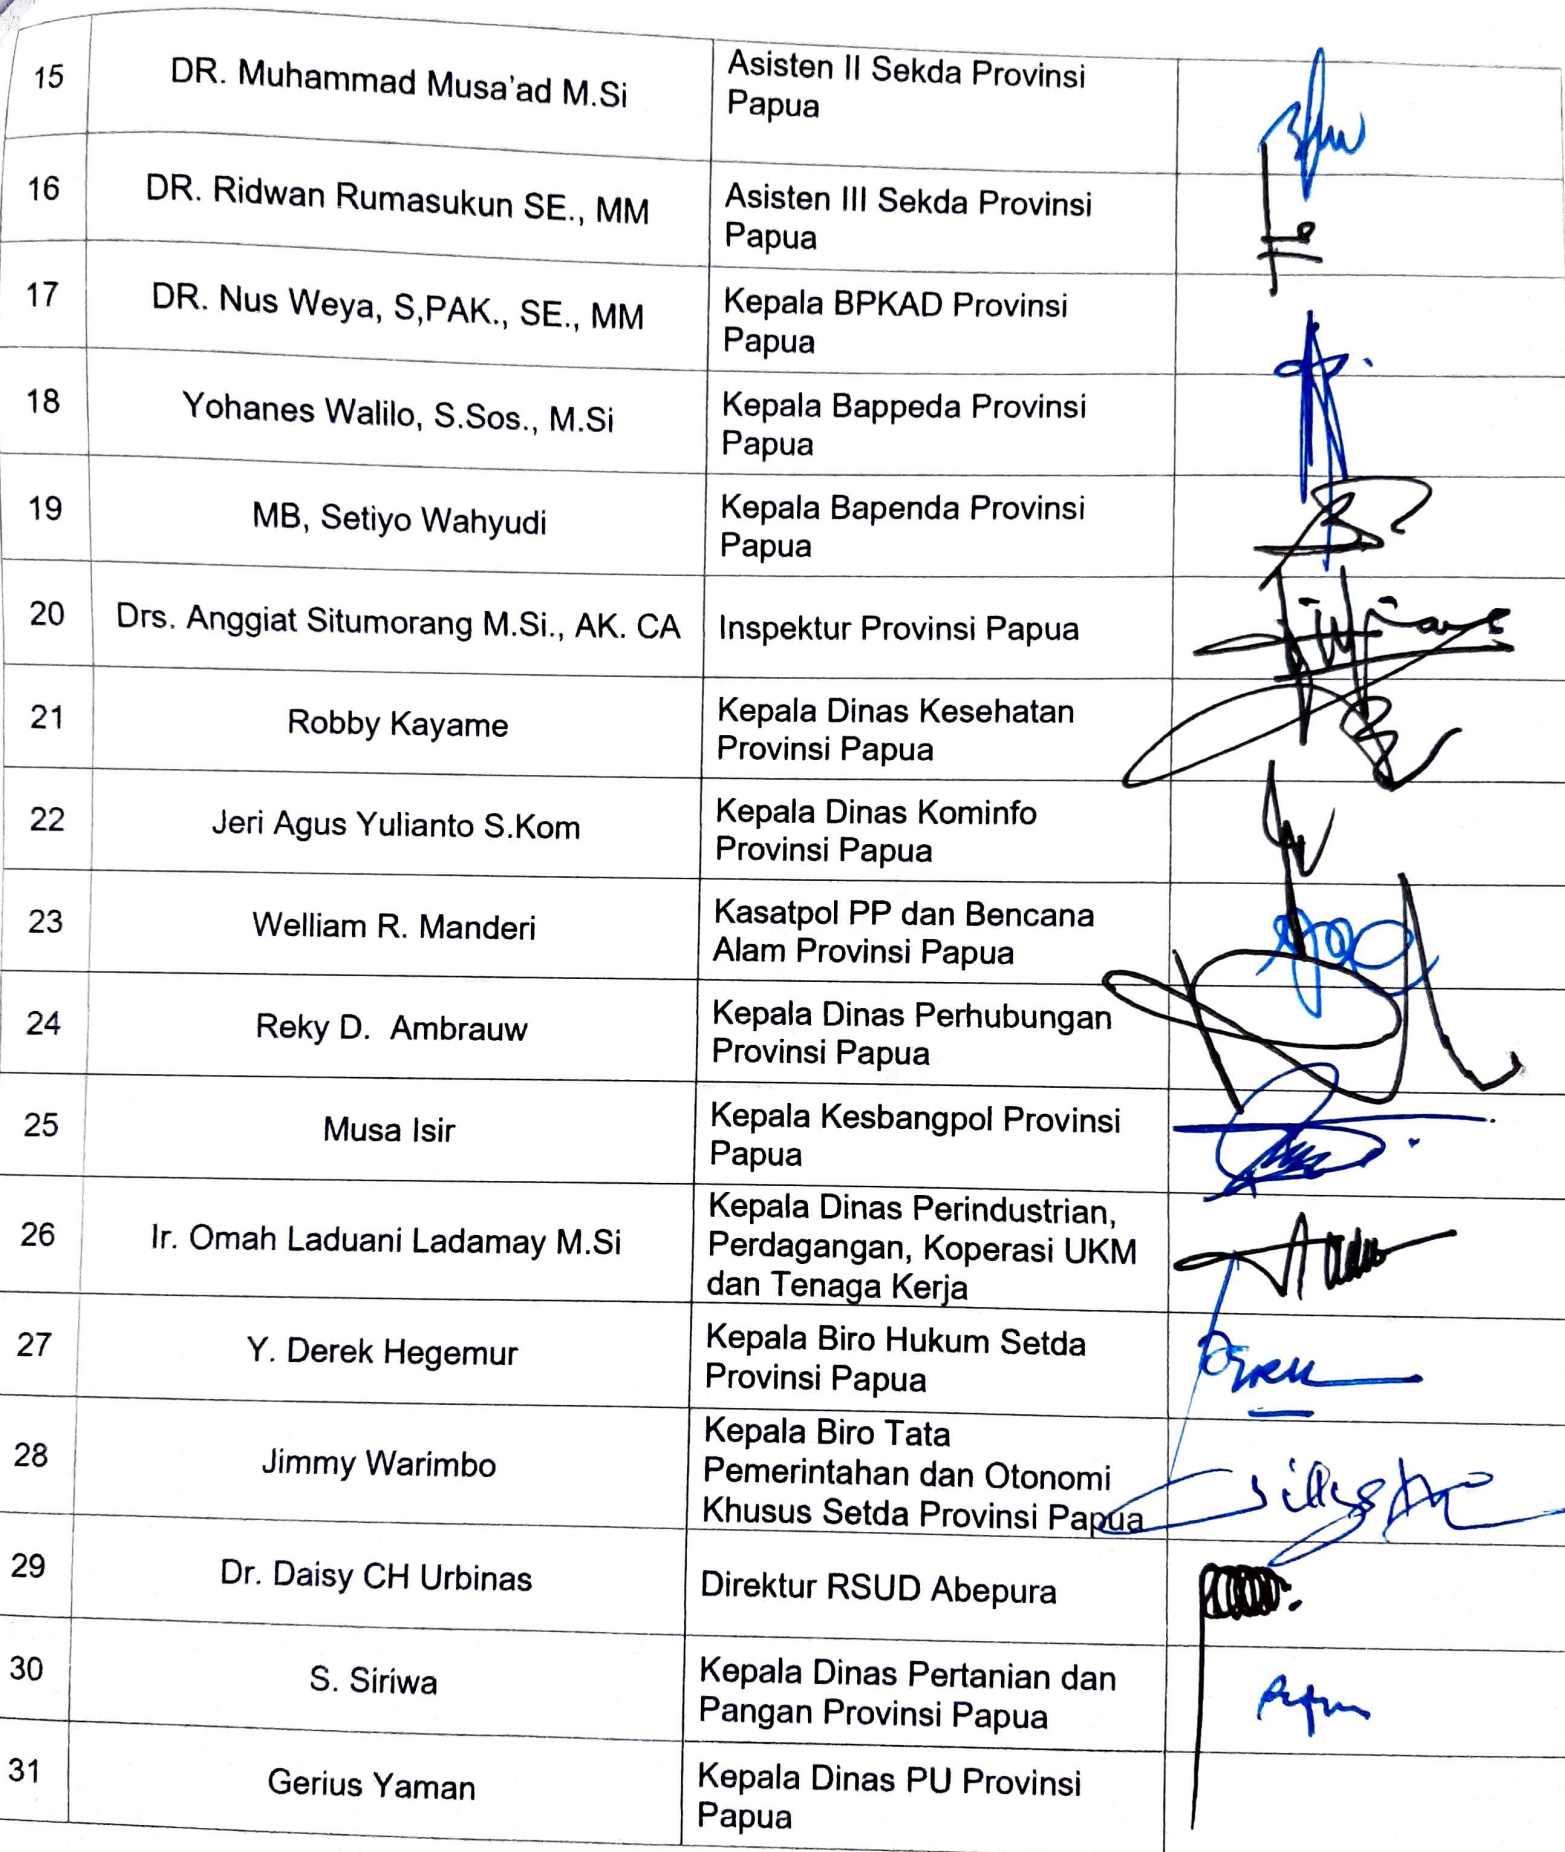 15
DR. Muhammad Musa'ad M.Si
Asisten II Sekda Provinsi
Papua
16
DR. Ridwan Rumasukun SE., MM
Asisten III Sekda Provinsi
Papua
17
DR. Nus Weya, S,PAK., SE., MM
Kepala BPKAD Provinsi
Papua
18
Yohanes Walilo, S.Sos., M.Si
Kepala Bappeda Provinsi
Papua
19
MB, Setiyo Wahyudi
Kepala Bapenda Provinsi
Papua
20
Drs. Anggiat Situmorang M.Si., AK. CA
Inspektur Provinsi Papua
21
Robby Kayame
Kepala Dinas Kesehatan
Provinsi Papua
22
Jeri Agus Yulianto S.Kom
Kepala Dinas Kominfo
Provinsi Papua
23
Welliam R. Manderi
Kasatpol PP dan Bencana
Alam Provinsi Papua
24
Reky D. Ambrauw
Kepala Dinas Perhubungan
Provinsi Papua
25
Musa Isir
Kepala Kesbangpol Provinsi
Papua
26
Ir. Omah Laduani Ladamay M.Si
Kepala Dinas Perindustrian,
Perdagangan, Koperasi UKM
dan Tenaga Kerja
27
Y. Derek Hegemur
Kepala Biro Hukum Setda
Provinsi Papua
28
Jimmy Warimbo
Kepala Biro Tata
Pemerintahan dan Otonomi
Khusus Setda Provinsi Papua
29
Dr. Daisy CH Urbinas
Direktur RSUD Abepura
30
S. Siriwa
Kepala Dinas Pertanian dan
Pangan Provinsi Papua
31
Gerius Yaman
Kepala Dinas PU Provinsi
Papua